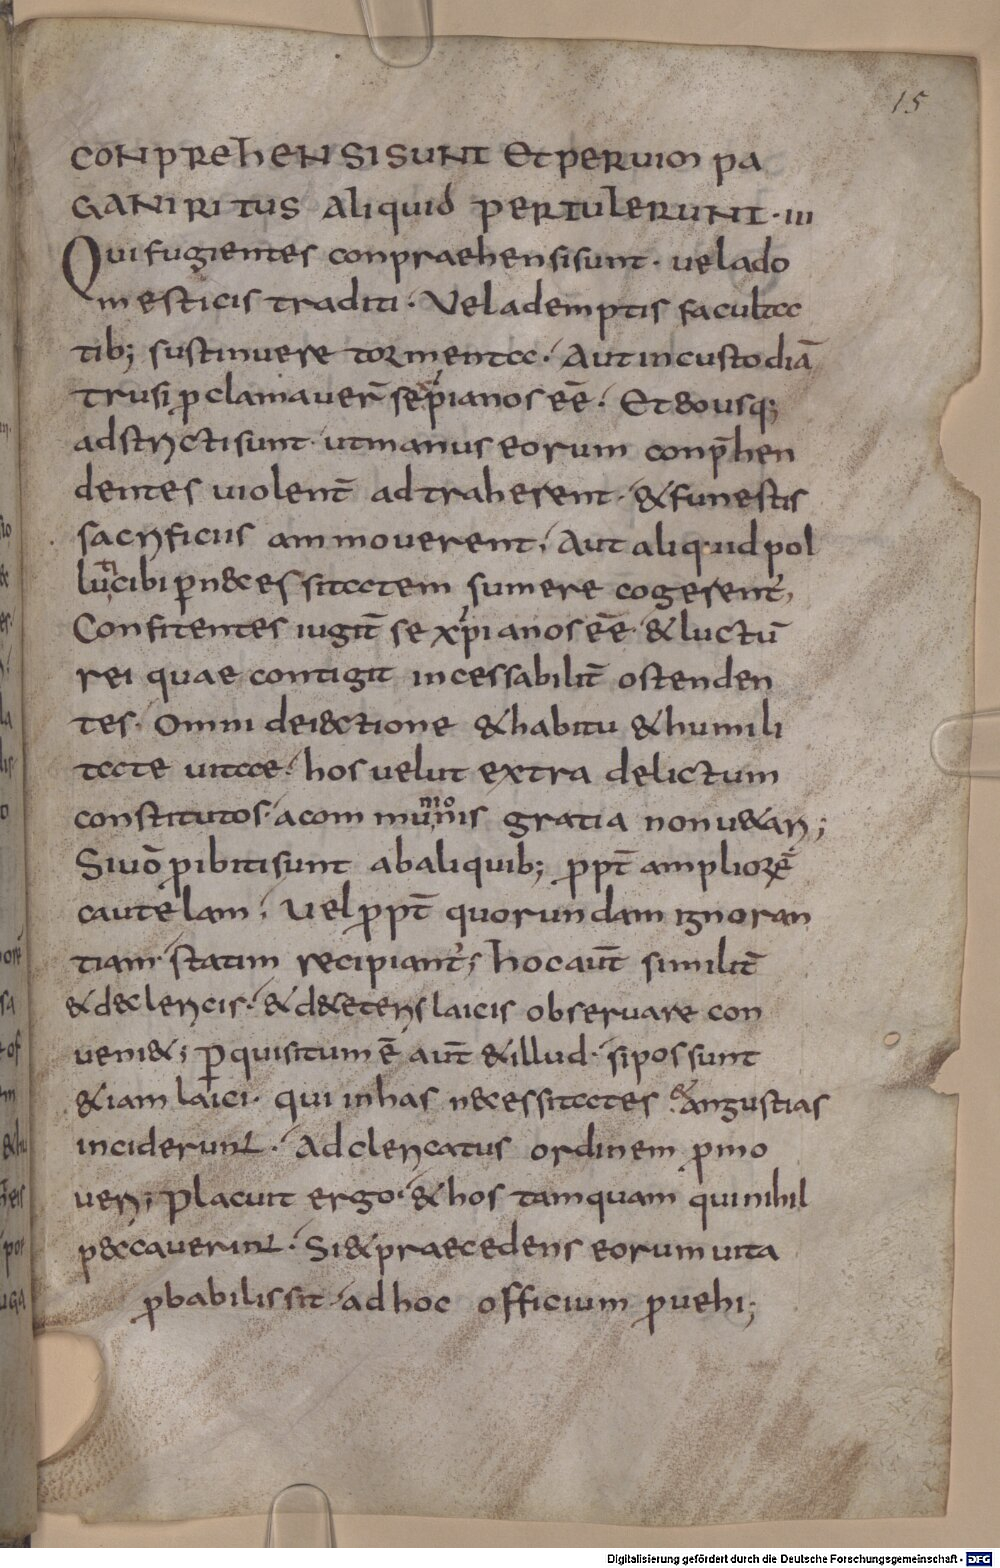 15
CONPREhENSI SUNT Et PER UIM PA
GANI RITUS Aliquid PERTULERUNT · III
Qui fugientes conpraehensi sunt · uel a do
mesticis traditi · Vel ademptis faculta
tib; sustinuere tormenta · Aut in custodiā
trusi ꝓclamauer̄ se xp̄ianos eē · Et eo usq;
adstricti sunt · ut manus eorum conp̄hen
dentes uiolent̄ adtraherent · & funestis
sacrificiis ammouerent, Aut aliquid pol
luti cibi ꝑ necessitatem sumere cogerent,
Confitentes iugit̄ se xp̄ianos eē · & luctū
rei quae contigit incessabilit̄ ostenden
tes · Omni deiectione & habitu & humili
tate uitae · hos uelut extra delictum
constitutos · a communionis gratia non uetari;
Si uō ꝓibiti sunt ab aliquib; ꝓpt̄ ampliorē
cautelam, Uel ꝓpt̄ quorundam ignoran
tiam · statim recipiant̄; hoc aut̄ similit̄
& de clericis · & de ceteris laicis obseruare con
ueni&; Perquisitum ē aut̄ & illud · si possunt
&iam laici · qui in has necessitates & angustias
inciderunt · Ad clericatus ordinem ꝓmo
ueri; Placuit ergo · & hos tamquam qui nihil
peccauerint · Si & praecedens eorum uita
ꝓbabilis sit · ad hoc officium ꝓuehi;
Digitalisierung gefördert durch die Deutsche Forschungsgemeinschaft - DFG